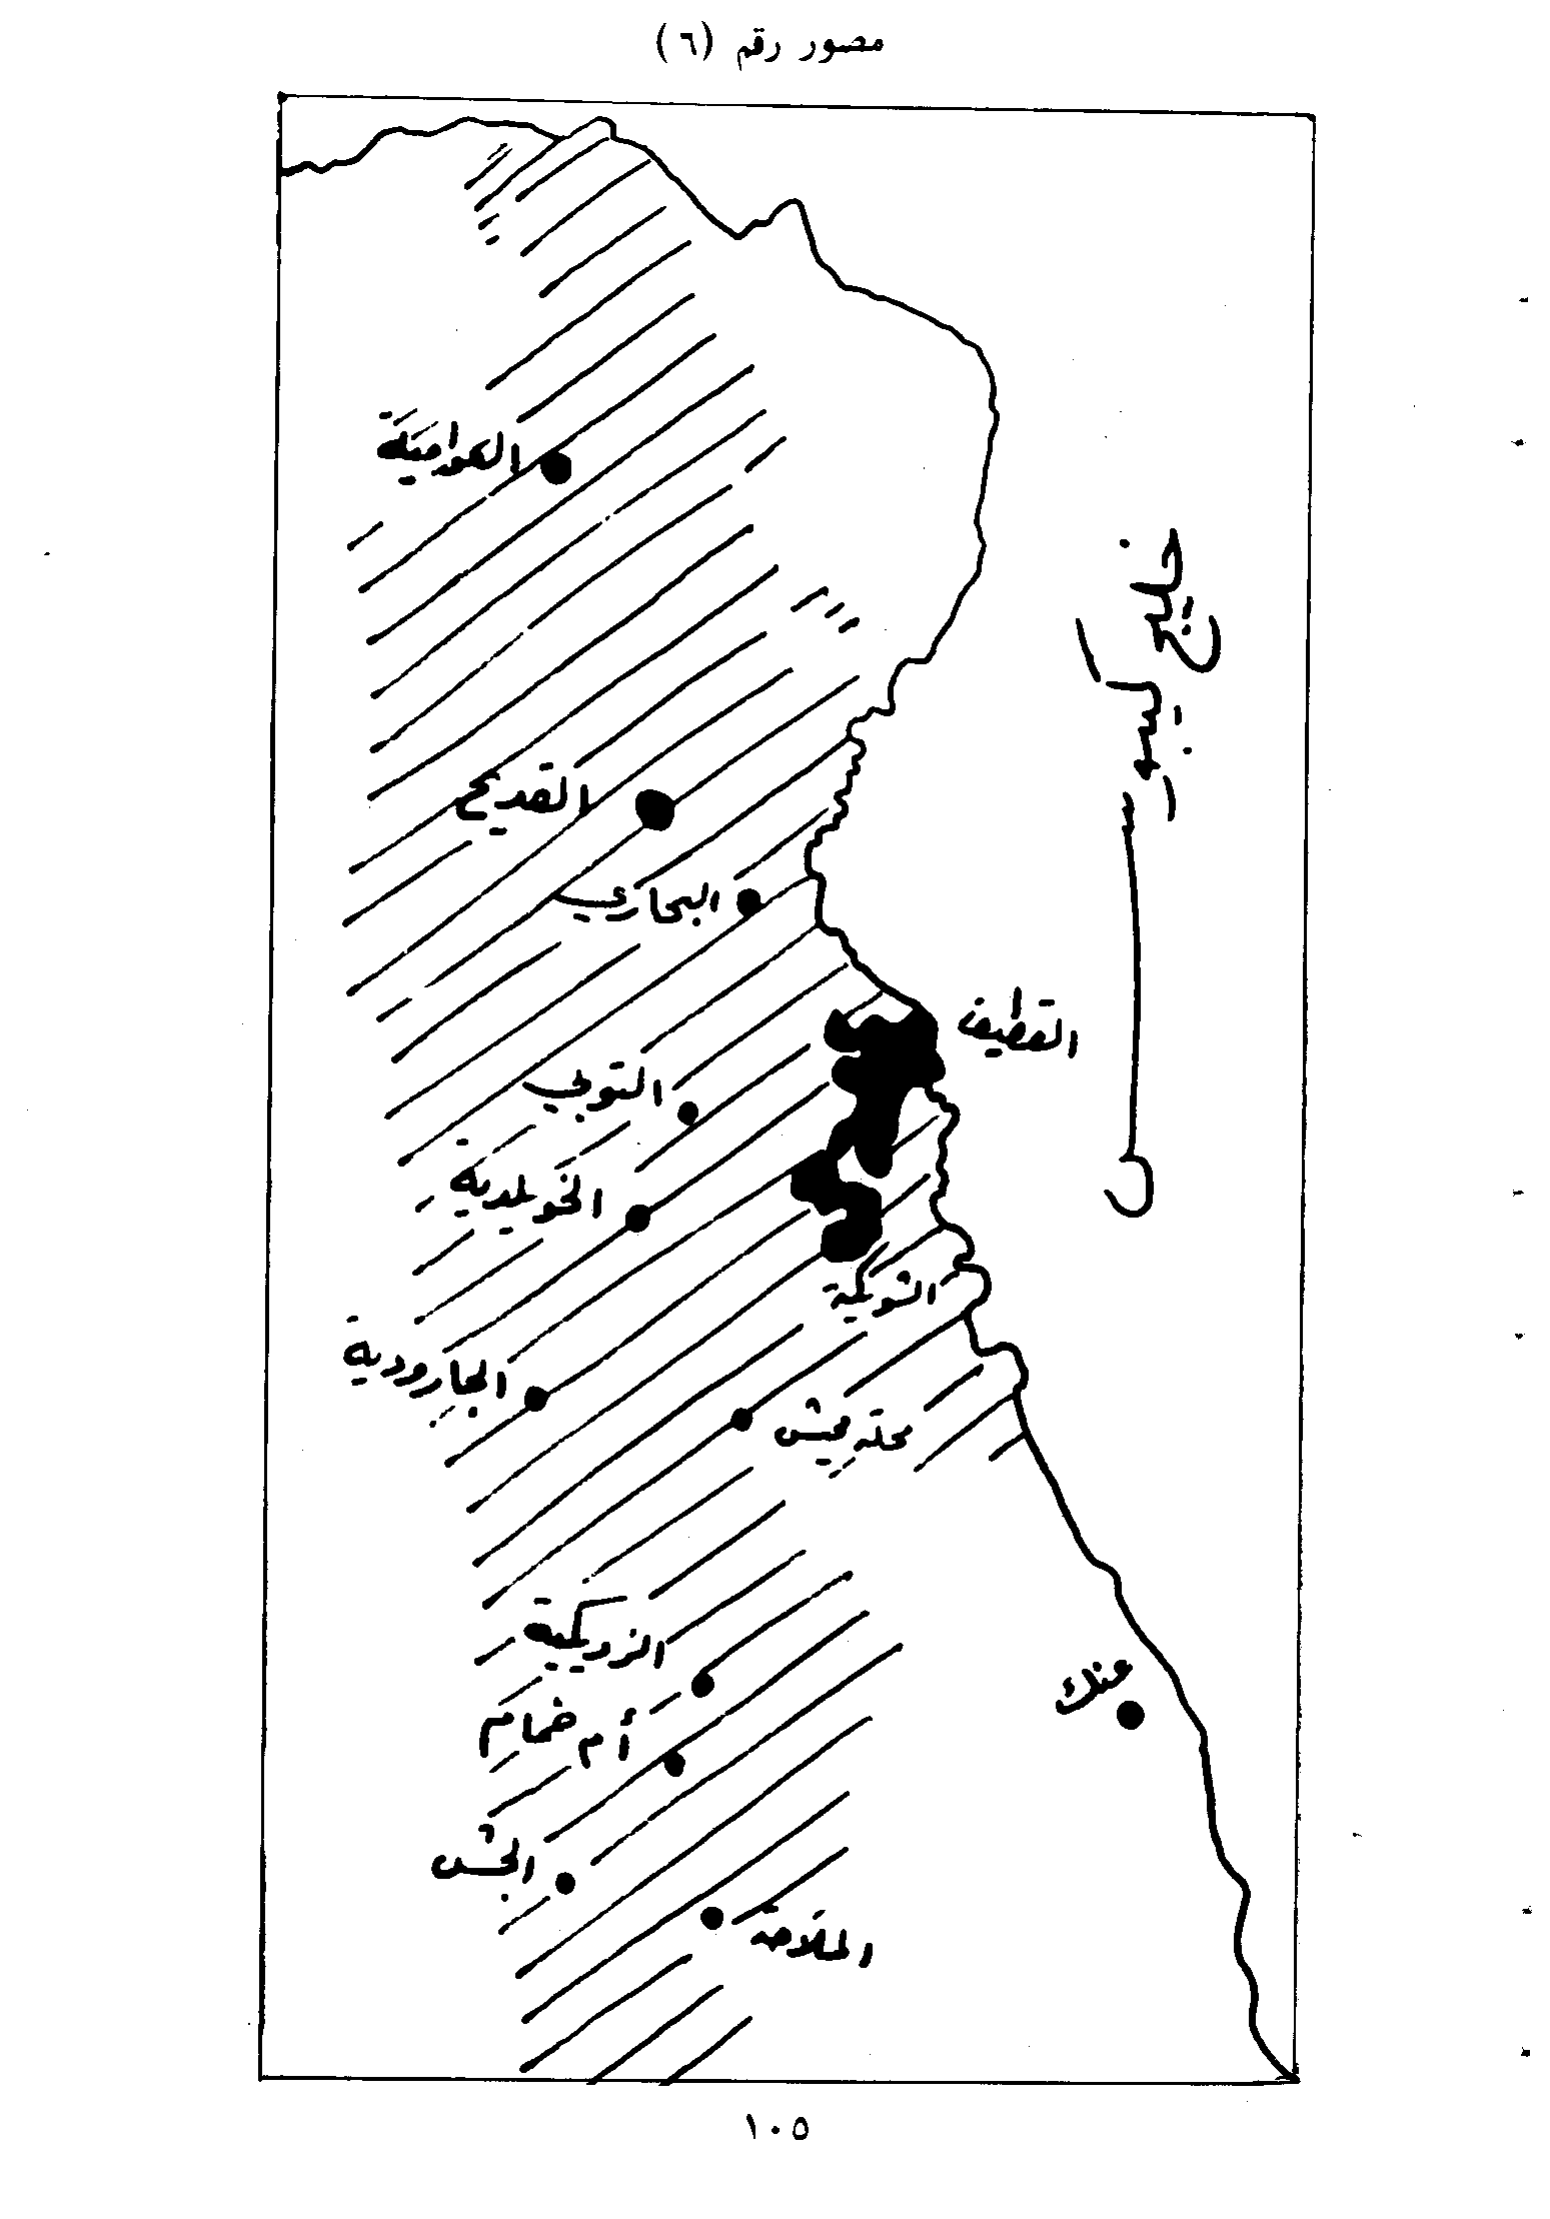 مصور رقم (٦)
العوامية
القديح
البحاري
القطيف
التوبي
الخويلدية
الشويكة
الجارودية
محلة محيش
عنك
أم خمام
الجش
الملاحة
١٠٥